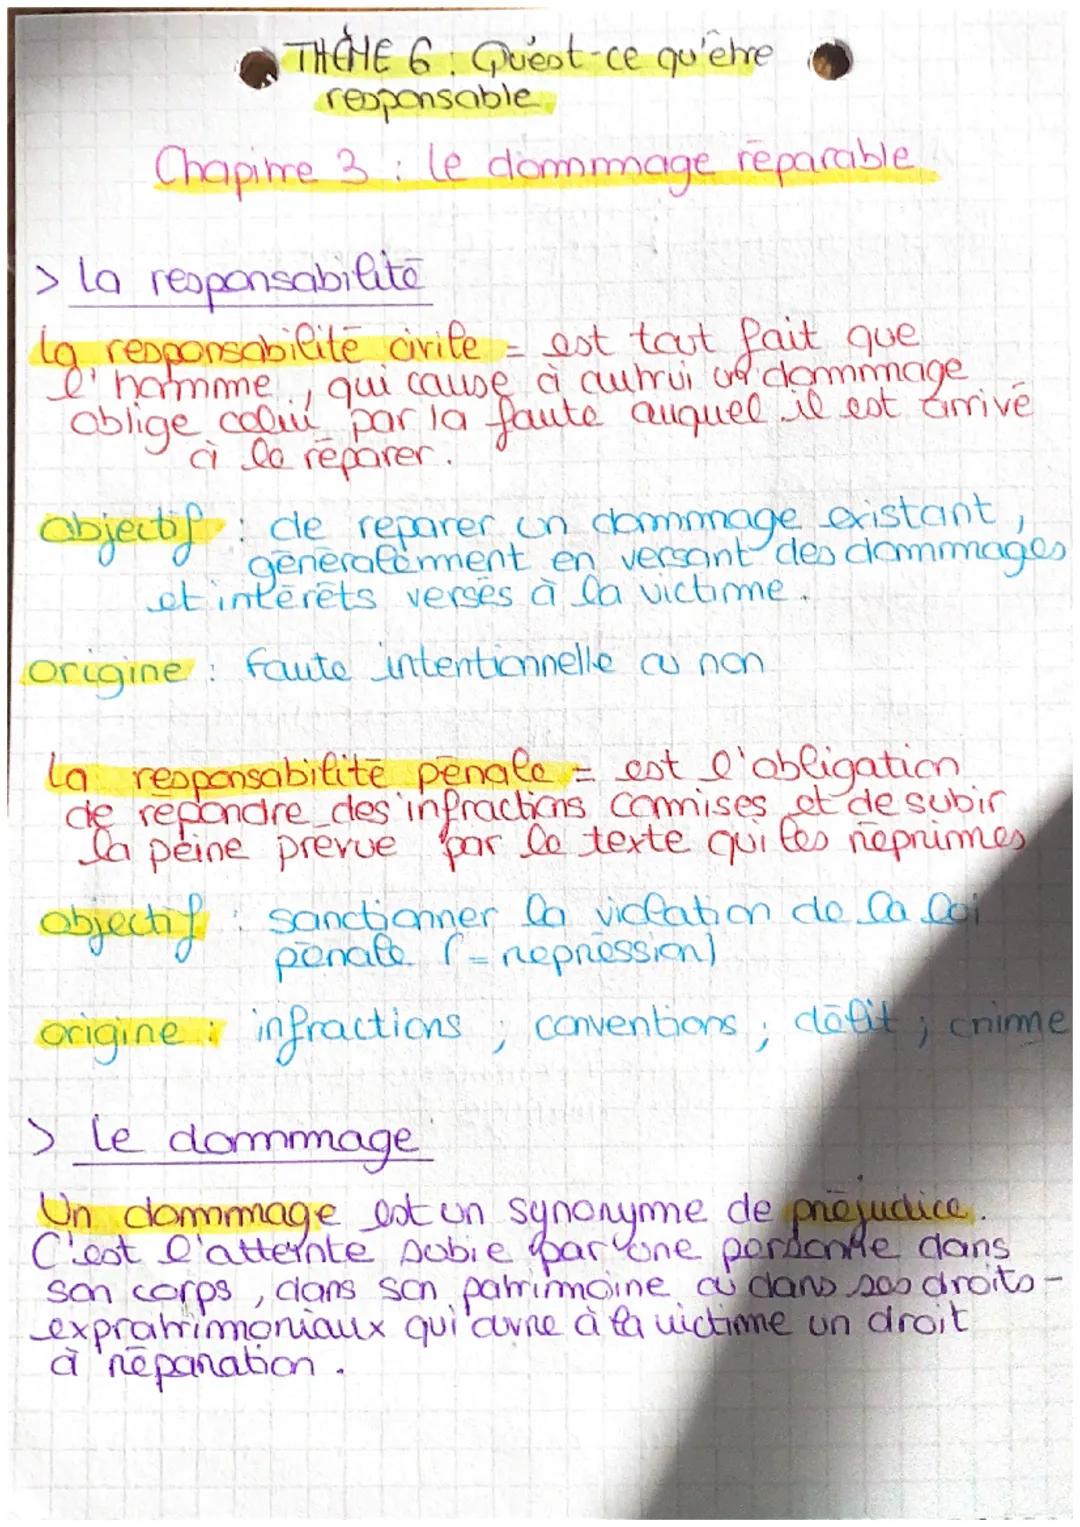 THÈME 6 : Qu'est-ce qu'être
responsable
Chapitre 3 : le dommage réparable
> la responsabilité
la responsabilité civile = est tout fait que
l'homme, qui cause à autrui un dommage
oblige celui par la faute auquel il est arrivé
à le réparer.
objectif : de reparer un dommage existant,
généralement en versant des dommages
et intérêts versés à la victime.
origine : faute intentionnelle ou non
la responsabilité pénale = est l'obligation
de répondre des infractions commises et de subir
la peine prévue par le texte qui les réprimes
objectif : sanctionner la violation de la loi
pénale (= répression)
origine : infractions ; conventions ; délit ; crime
> le dommage
Un dommage est un synonyme de préjudice.
C'est l'atteinte subie par une personne dans
son corps, dans son patrimoine ou dans ses droits-
expratrimoniaux qui ouvre à la victime un droit
à réparation.